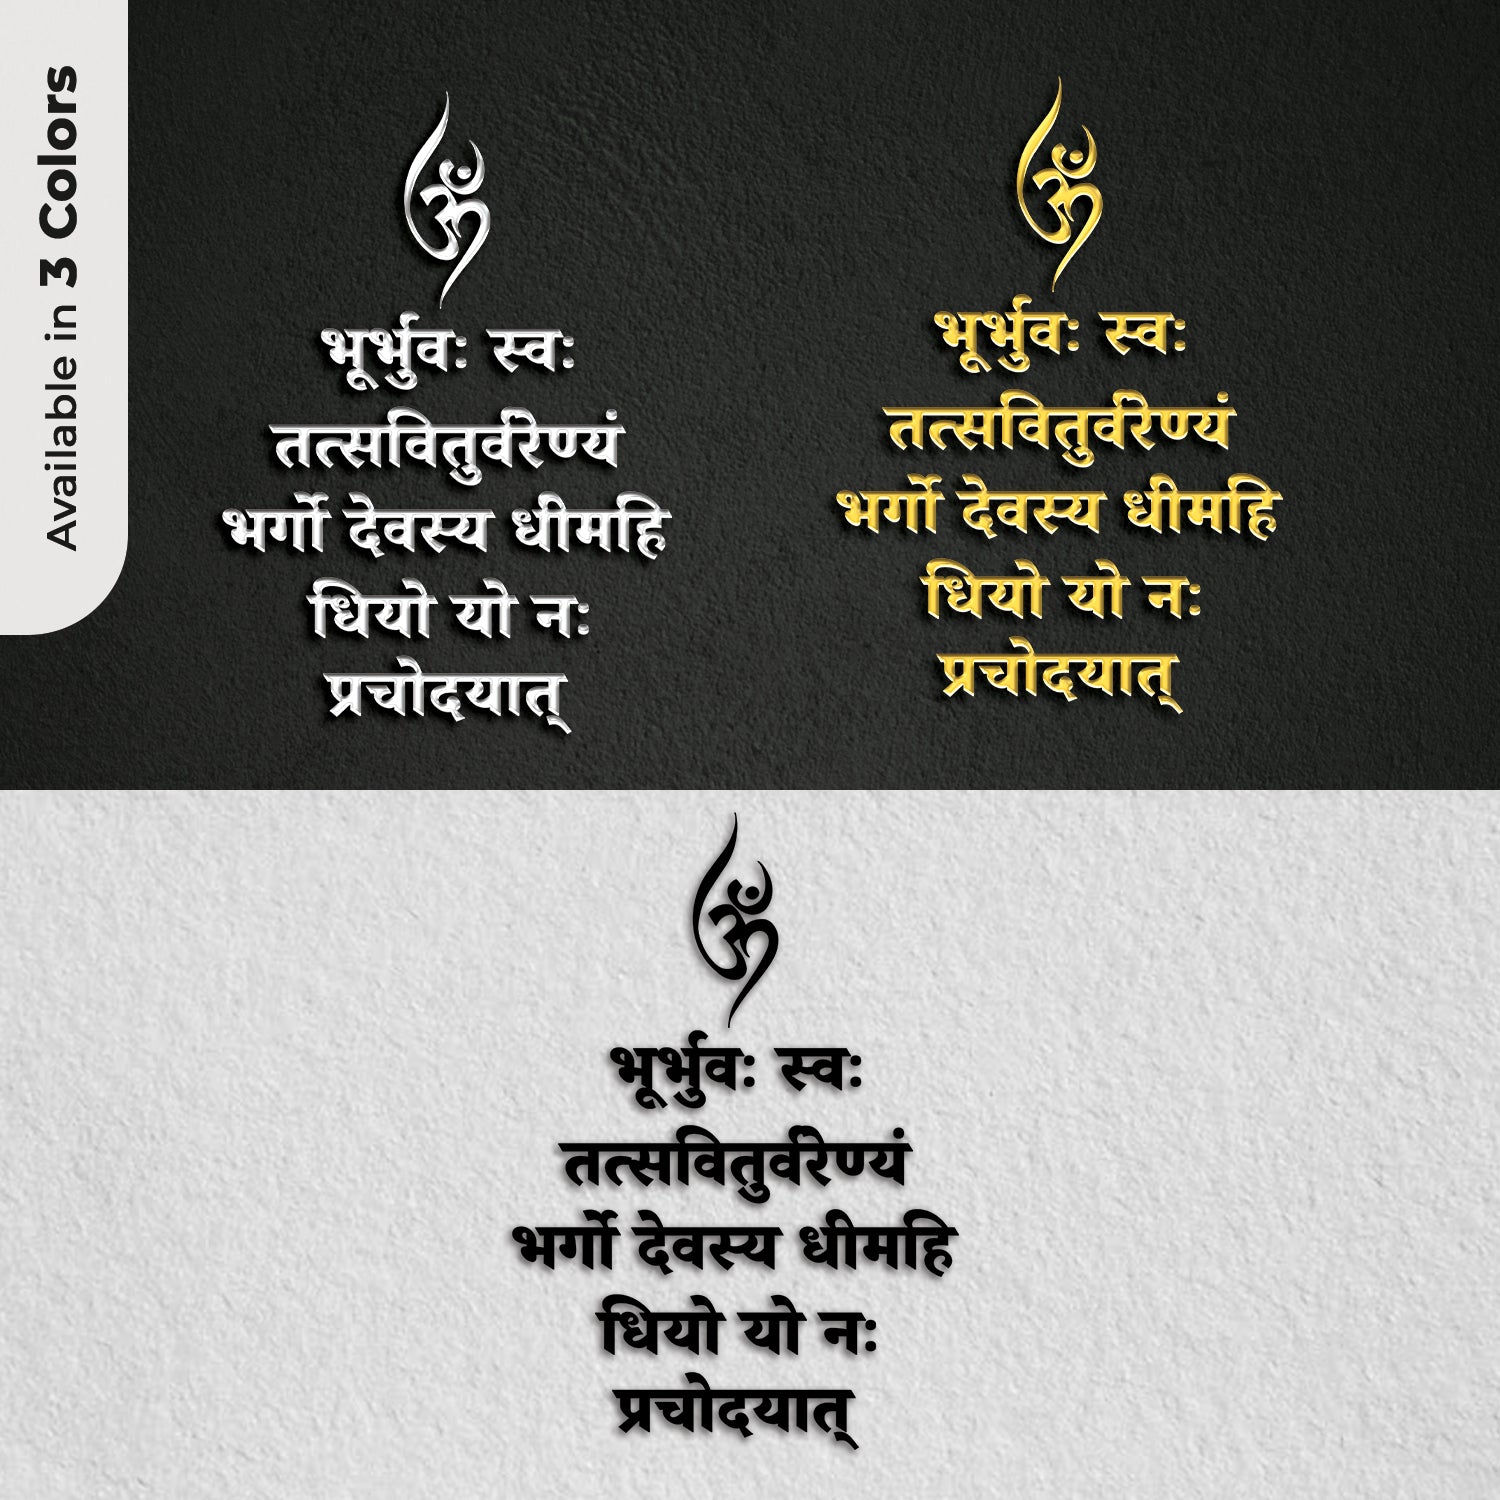 Available in 3 Colors
ॐ
भूर्भुवः स्वः
तत्सवितुर्वरेण्यं
भर्गो देवस्य धीमहि
धियो यो नः
प्रचोदयात्
ॐ
भूर्भुवः स्वः
तत्सवितुर्वरेण्यं
भर्गो देवस्य धीमहि
धियो यो नः
प्रचोदयात्
ॐ
भूर्भुवः स्वः
तत्सवितुर्वरेण्यं
भर्गो देवस्य धीमहि
धियो यो नः
प्रचोदयात्